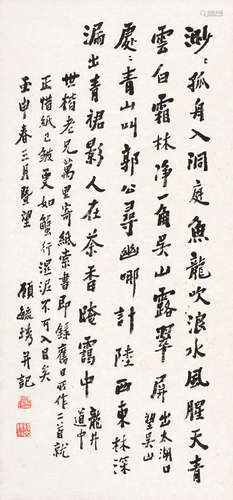 渺〻孤舟入洞庭魚龍吹浪水風腥天青
雲白霜林淨一角吳山露翠屏
出太湖口
望吳山
處〻青山叫郭公尋幽哪計陸西東林深
漏出青裙影人在茶香晻靄中
龍井
道中
世楷老兄萬里寄紙索書即錄舊日所作二首就
正惜紙已皺更如蟹行濕泥不可入目矣
壬申春三月暨望 顧毓琇并記